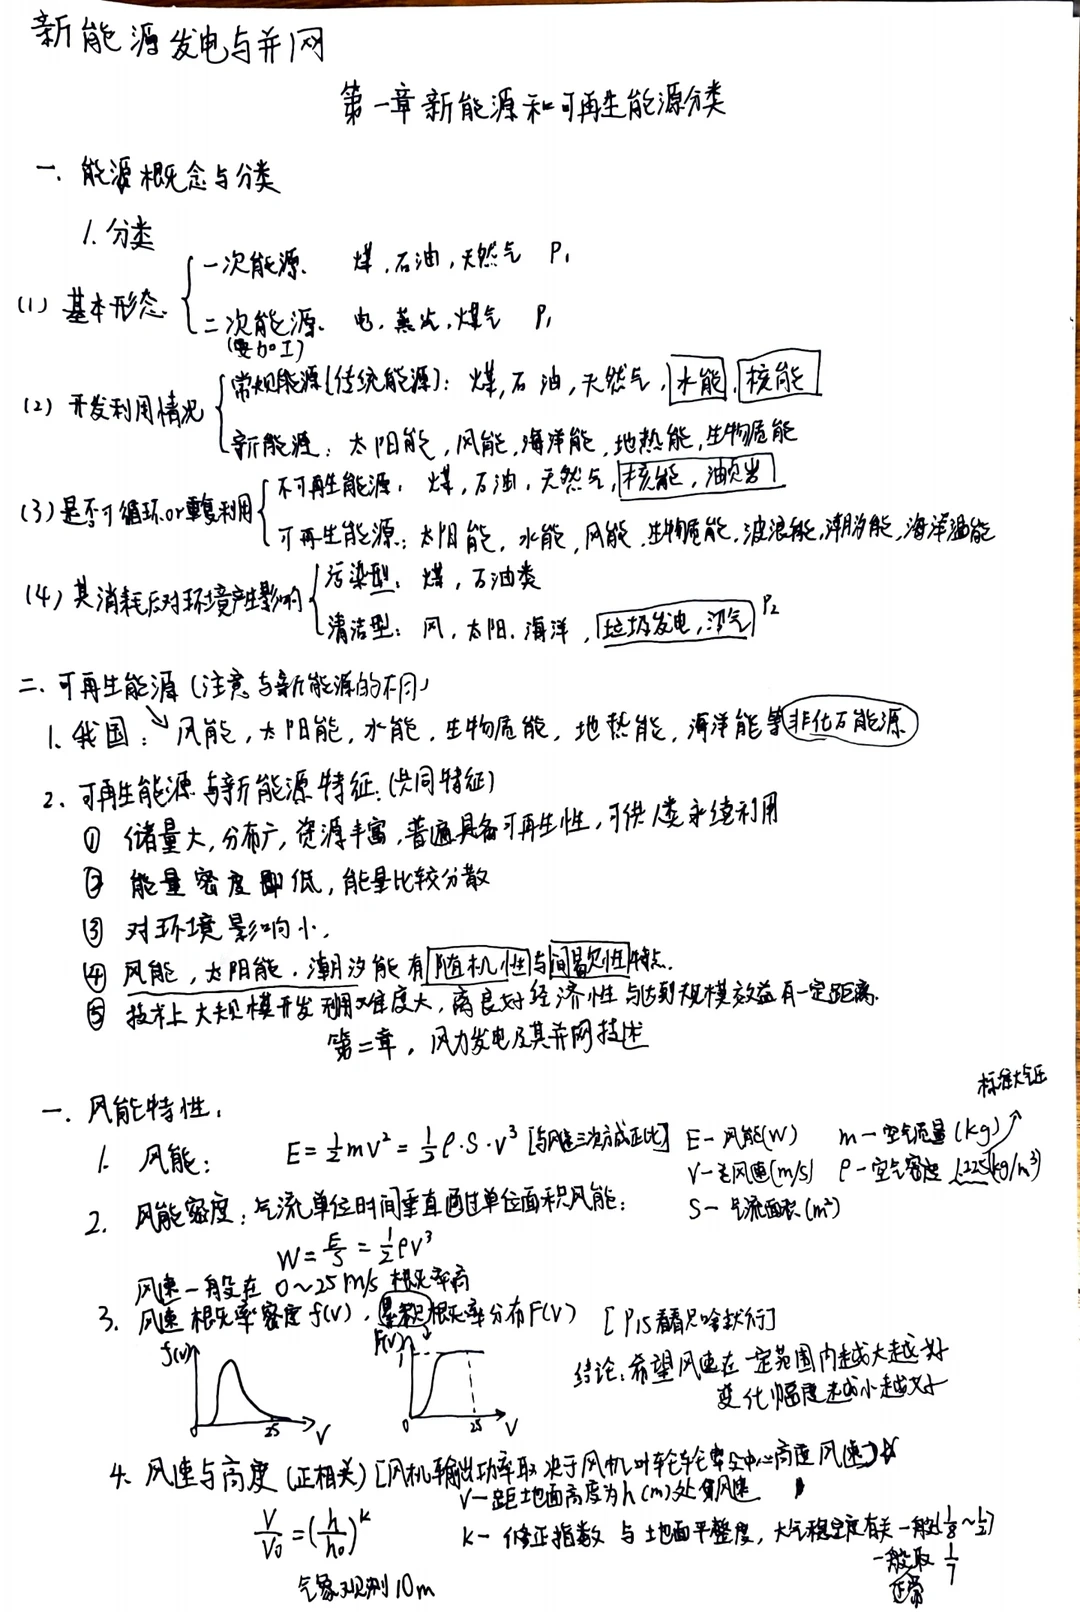 新能源发电与并网
第一章 新能源和可再生能源分类
一、能源概念与分类
1. 分类
(1) 基本形态
一次能源、 煤,石油,天然气 P1
二次能源、 电,蒸汽,煤气 P1
(要加工)
(2) 开发利用情况
常规能源(传统能源): 煤,石油,天然气,水能,核能
新能源: 太阳能,风能,海洋能,地热能,生物质能
(3) 是否可循环or重复利用
不可再生能源: 煤,石油,天然气,核能,油页岩
可再生能源: 太阳能,水能,风能,生物质能,波浪能,潮汐能,海洋温能
(4) 其消耗后对环境产生影响
污染型: 煤,石油类
清洁型: 风,太阳,海洋,垃圾发电,沼气 P2
二、可再生能源(注意与新能源的不同)
1、我国: 风能,太阳能,水能,生物质能,地热能,海洋能等非化石能源
2、可再生能源与新能源特征:(共同特征)
① 储量大,分布广,资源丰富,普遍具备可再生性,可供人类永续利用
② 能量密度低,能量比较分散
③ 对环境影响小.
④ 风能,太阳能,潮汐能有随机性与间歇性特点.
⑤ 技术上大规模开发利用难度大,离良好经济性与达到规模效益有一定距离.
第二章,风力发电及其并网技术
标准大气压
一、风能特性:
1. 风能: E=½mv²=½ρ·S·v³ [与风速三次方成正比] E—风能(W) m—空气质量(kg)
V—风速(m/s) ρ—空气密度 1.225(kg/m³)
S—气流面积(m²)
2. 风能密度:气流单位时间垂直通过单位面积风能:
W=E/S=½ρv³
风速一般在0~25m/s 概率高
3. 风速概率密度f(v),累积概率分布F(V) [P15看看只啥就行]
f(v) F(v) 1
结论:希望风速在一定范围内越大越好
变化幅度越小越好
0 25 V 0 25 V
4. 风速与高度(正相关)[风机输出功率取决于风机叶轮轮毂中心高度风速]
V—距地面高度为h(m)处风速
V/V0=(h/h0)^k K—修正指数 与土地面平整度,大气稳定度有关 一般(1/8~1/2)
一般取 1/7
正常
气象观测10m